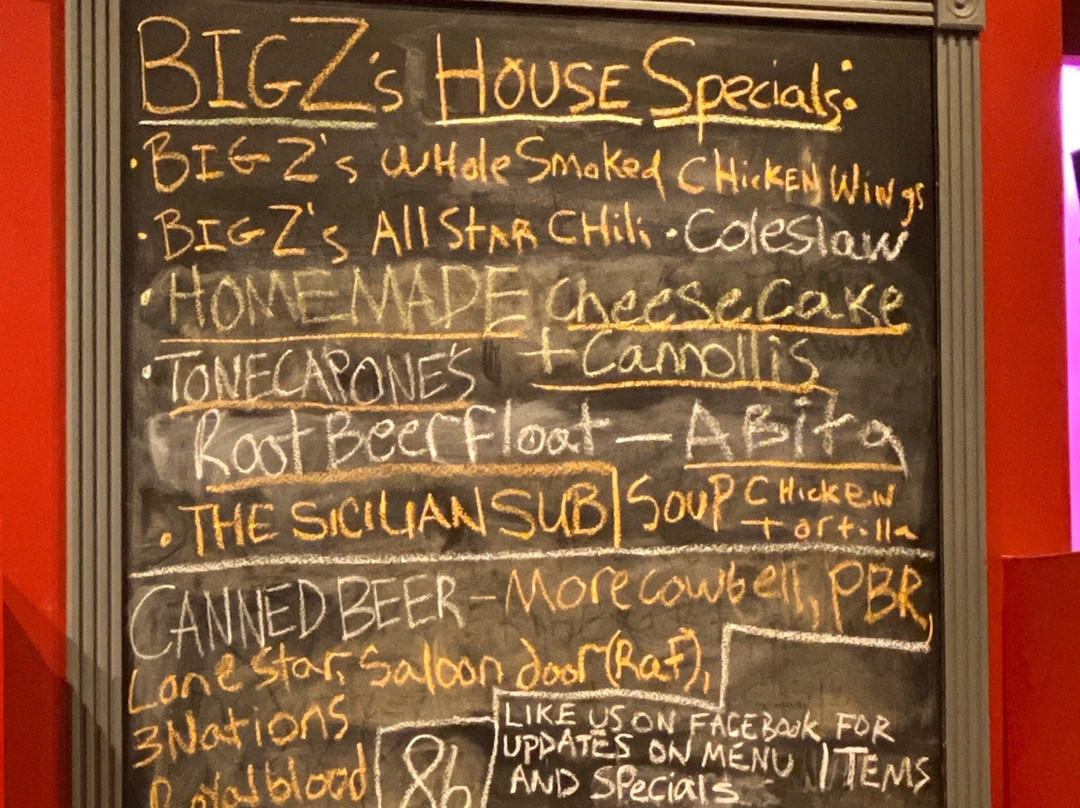 BIGZ's HOUSE Specials:
• BIG Z's WHole Smoked CHicKEN Wings
• BIG Z's All StAR CHili • Coleslaw
• HOMEMADE CheeseCake
+ Cannollis
• TONECAPONE'S
Root Beer Float — ABita
• THE SICILIAN SUB SOUP CHickEN
Tortilla
CANNED BEER - More cowbell, PBR,
Lone Star, Saloon door (Raf),
3 Nations
Royal blood
86
LIKE US ON FACEBOOK FOR
UPDATES ON MENU ITEMS
AND SPecials